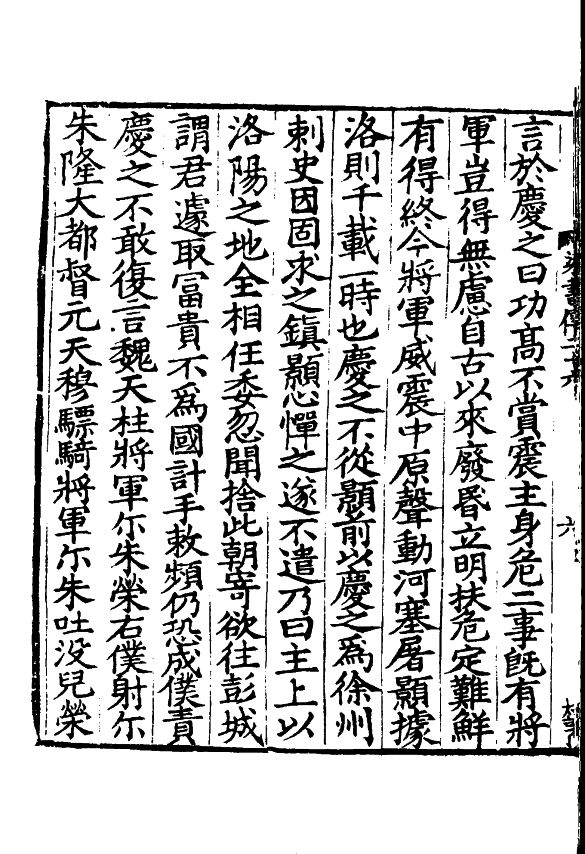 言於慶之曰功髙不賞震主身危二事旣有將
軍豈得無慮自古以來廢昬立明扶危定難鮮
有得終今將軍威震中原聲動河塞屠顥據
洛則千載一時也慶之不從顥前以慶之爲徐州
刺史因固求之鎮顥心憚之遂不遣乃曰主上以
洛陽之地全相任委忽聞捨此朝寄欲往彭城
謂君遽取富貴不爲國計手敕頻仍恐成僕責
慶之不敢復言魏天柱將軍尒朱榮右僕射尒
朱隆大都督元天穆驃騎將軍尒朱吐没兒榮